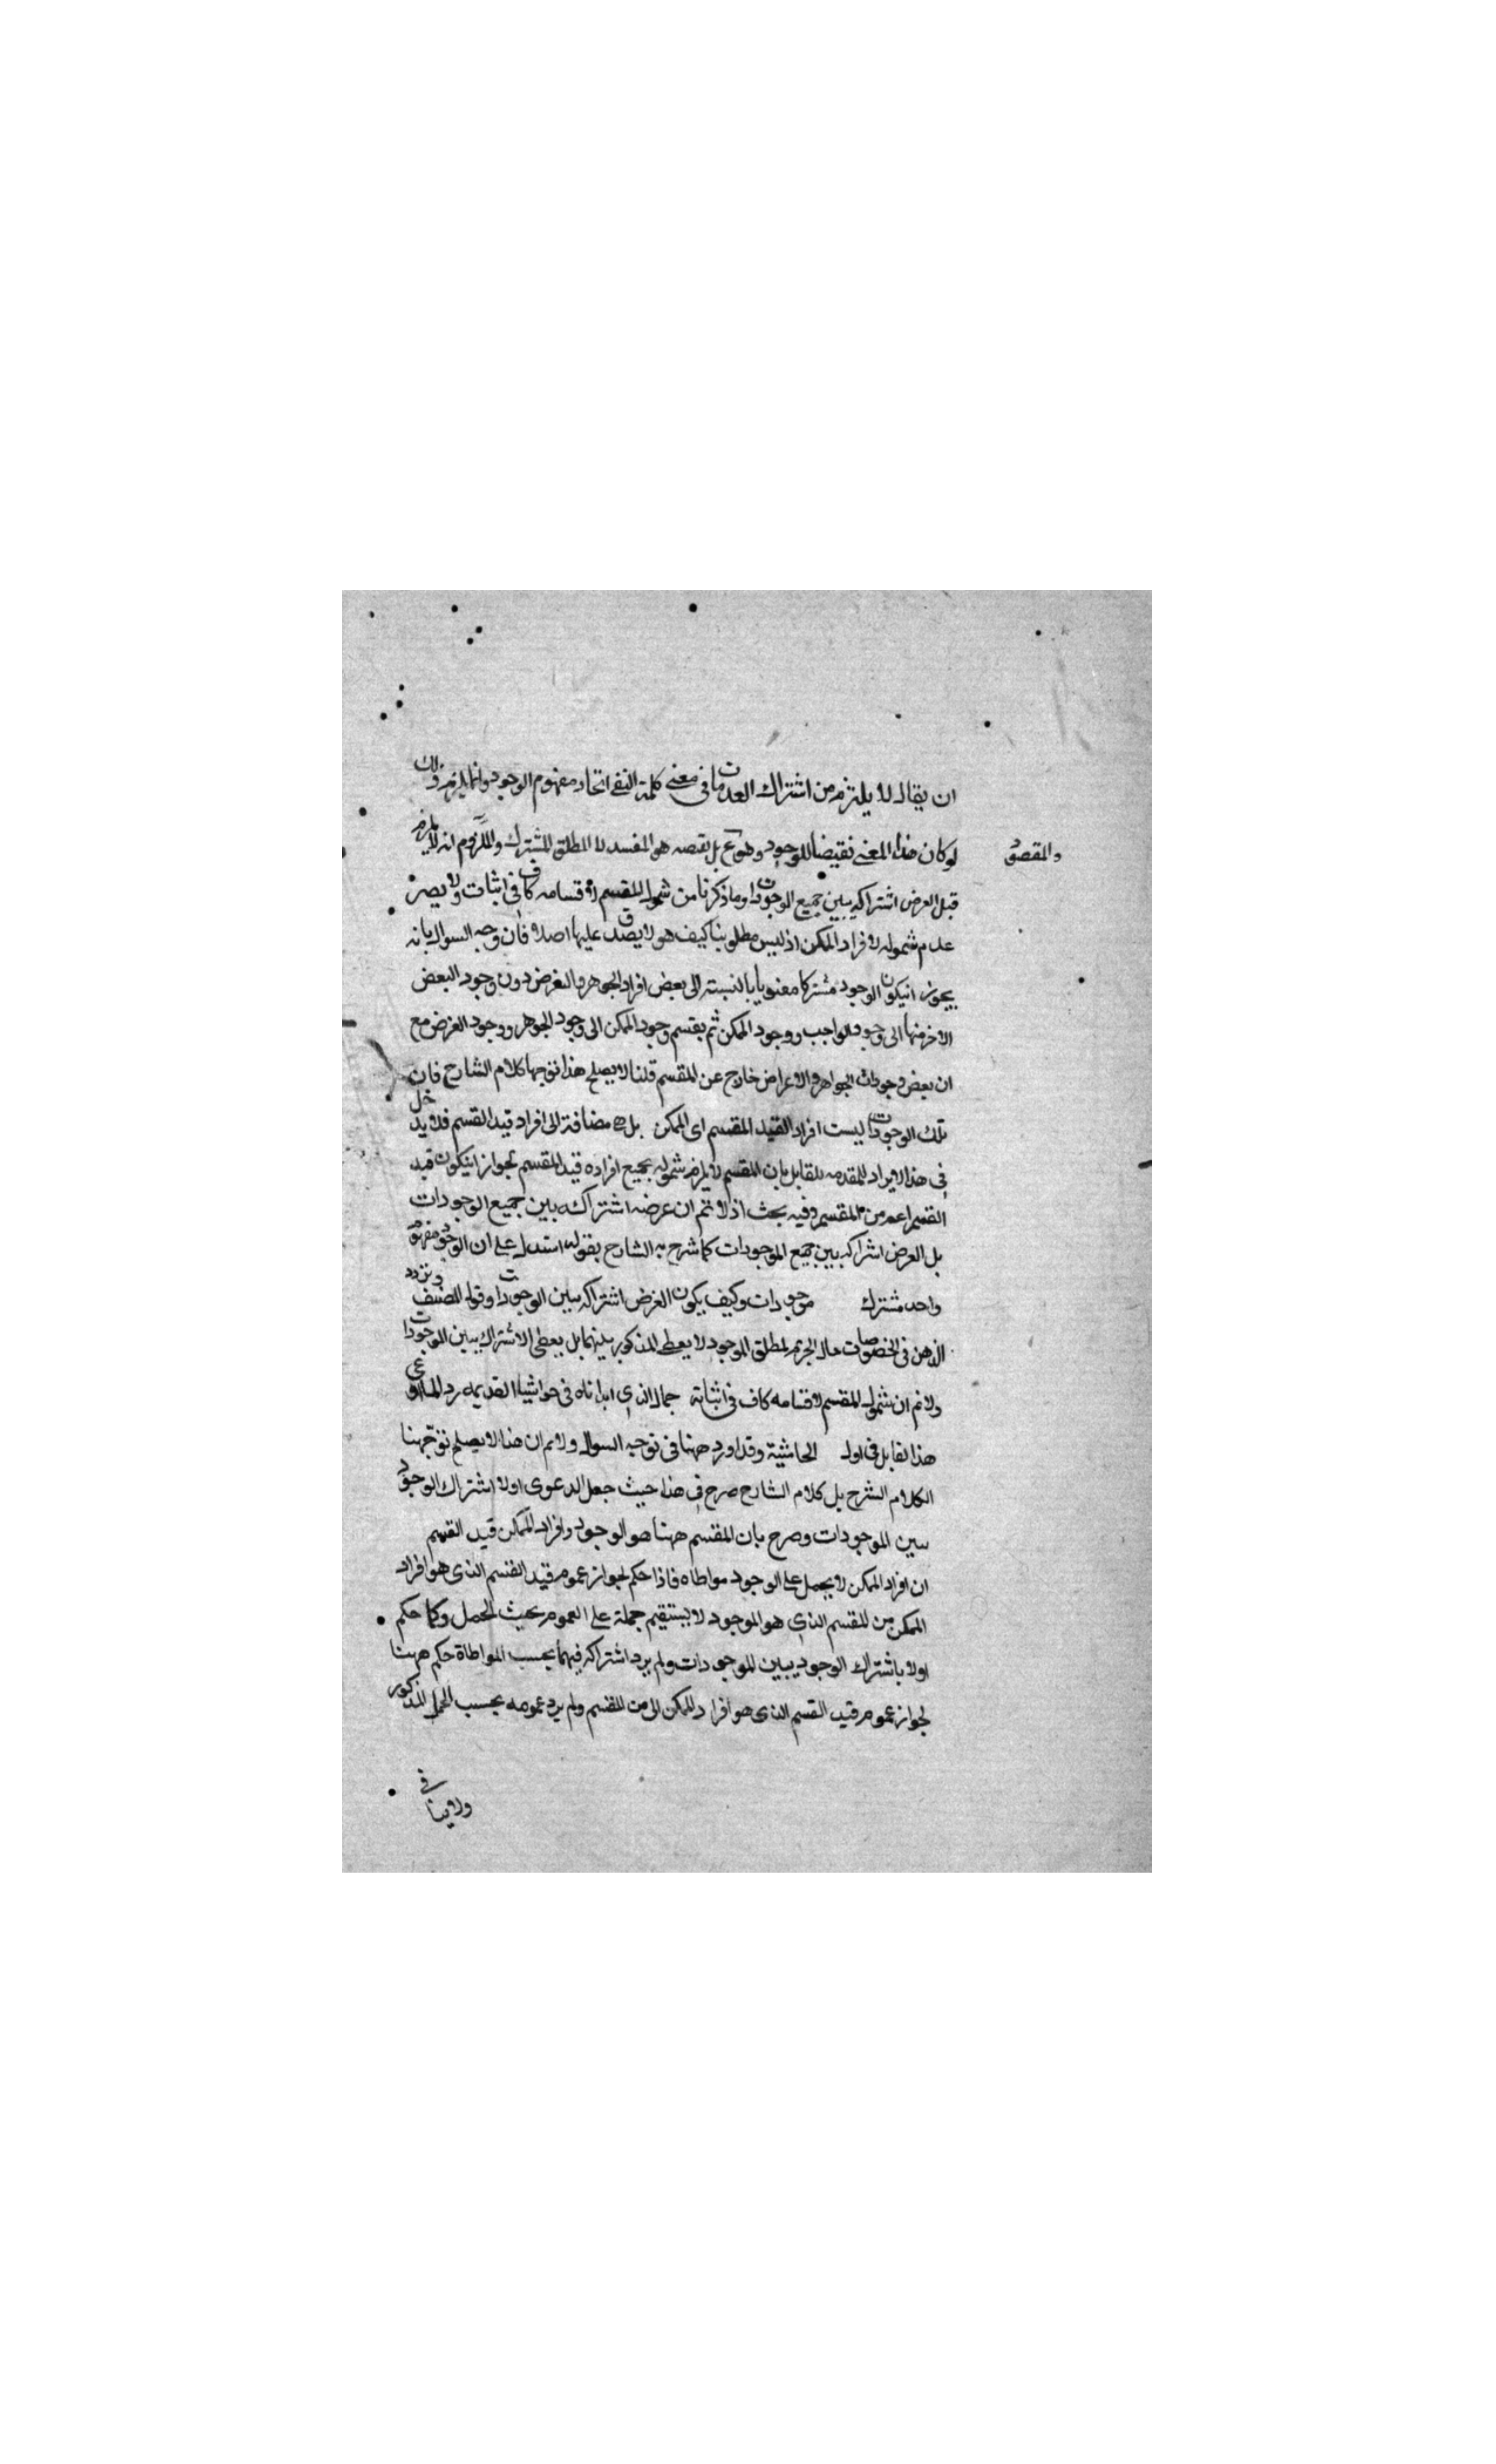 ان يقال لا يلزم من اشتراك العدمات فى معنى كلمة النفى اتحاد مفهوم الوجود وانما يلزم ذلك
لو كان هذا المعنى نقيضا للوجود وهو مم بل نقيضه هو المفسد لا المطلق المشترك والملزوم انه لا يلزم
والمقصود
قبل العرض اشتراكه بين جميع الوجودات وما ذكرنا من شمول المقسم لاقسامه كاف فى اثبات ولا يضر
عدم شموله لافراد الممكن اذ ليس مطلوبنا كيف هو لا يصدق عليها اصلا فان وجه السوال بانه
يجوز انيكون الوجود مشتركا معنويا بالنسبة الى بعض افراد الجوهر والعرض دون وجود البعض
الاخر منها الى وجود الواجب ووجود الممكن ثم يقسم وجود الممكن الى وجود الجوهر ووجود العرض مع
ان بعض وجودات الجواهر والاعراض خارج عن المقسم قلنا لا يصلح هذا توجيها كلام الشارح فان
تلك الوجودات ليست افراد القيد المقسم اى الممكن بل هى مضافة الى افراد قيد القسم فلا يدخل
فى هذا الايراد للمقدمه للقايل بان المقسم لا يلزم شموله بجميع افراده قيد المقسم لجواز انيكون قيد
القسم اعم من المقسم وفيه بحث اذ لا نم ان عرضه اشتراكه بين جميع الوجودات
بل العرض اشراكه بين جميع الموجودات كما شرح به الشارح بقوله استدل على ان الوجود مفهوم
واحد مشترك موجودات وكيف يكون الغرض اشتراكه بين الوجودات وقول المصنف وتردد
الذهن فى الخصوصات حال الجزم لمطلق الموجود لا يعطى المذكور بينهما بل يعطى الاشتراك بين الموجودات
ولا نم ان شمول المقسم لاقسامه كاف فى اثباته جمال الذى ابدناه فى حواشينا القديمه رد المدعى
هذا لقايل فى اول الحاشية وقد اورد ههنا فى توجيه السوال ولا نم ان هذا لا يصلح توجيهنا
الكلام الشرح بل كلام الشارح صرح فى هذا حيث جعل الدعوى اولا اشتراك الوجود
بين الموجودات وصرح بان المقسم ههنا هو الوجود وافراد الممكن قيد القسم
ان افراد الممكن لا يحمل على الوجود مواطاه فاذا حكم لجواز عموم قيد القسم الذى هو افراد
الممكن من للقسم الذى هو الموجود لا يستقيم حمله على العموم بحيث الحمل وكما حكم
اولا باشتراك الوجود بين الموجودات ولم يرد اشتراكه فيهما بحسب المواطاة حكم ههنا
لجواز عموم قيد القسم الذى هو افراد للممكن الى من للقسم ولم يرد عمومه بحسب الحمل المذكور
ولا ينافى